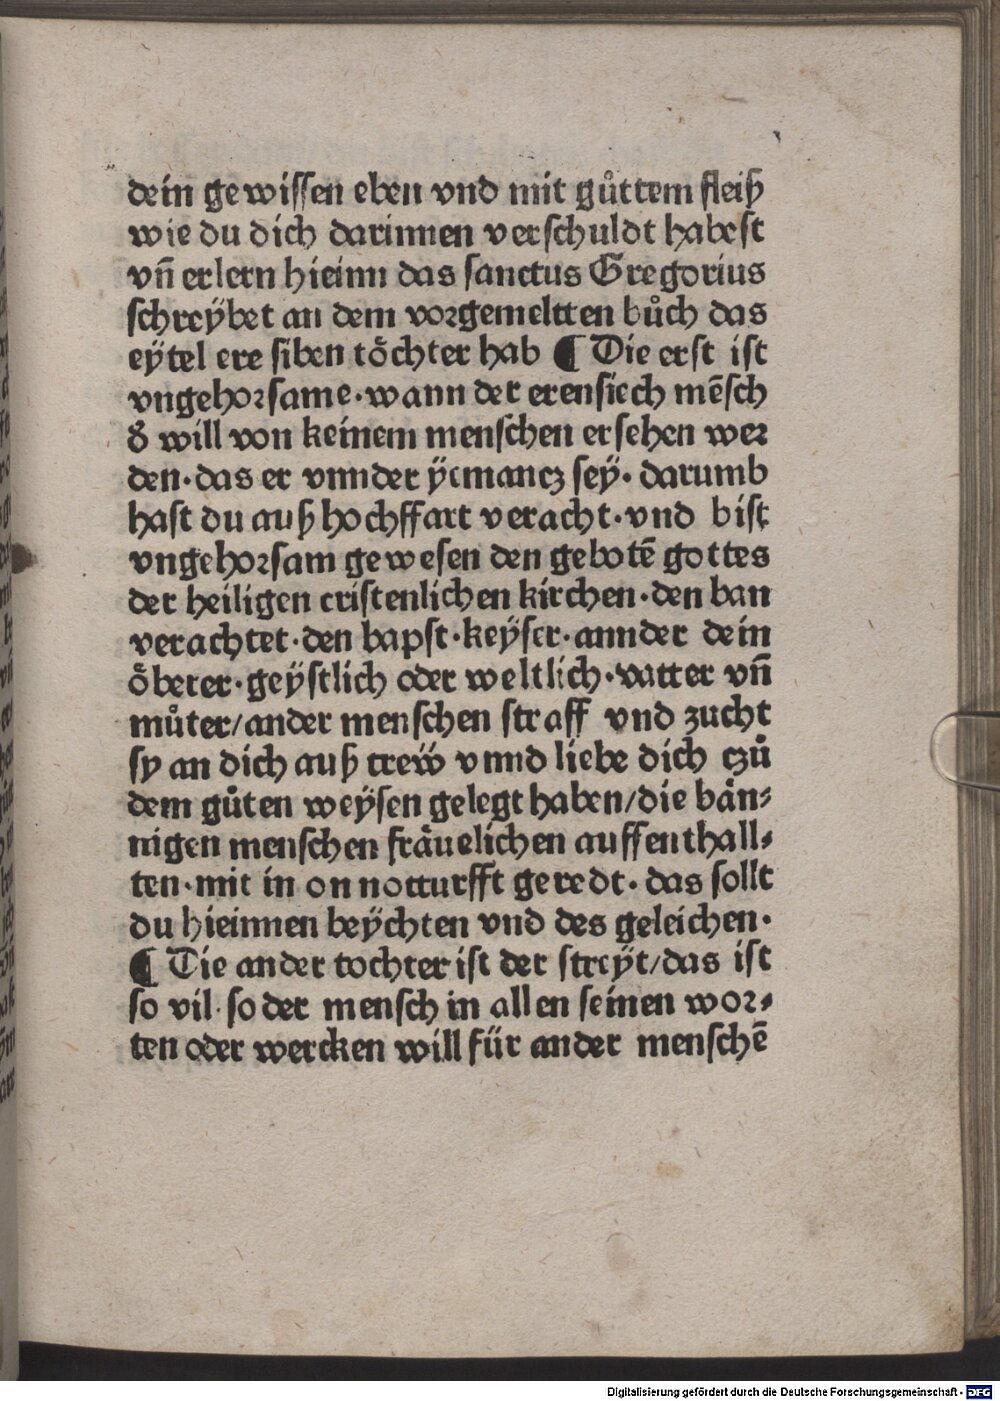 dein gewissen eben vnd mit gůttem fleiß
wie du dich darinnen verschuldt habest
vn̄ erlern hieinn das sanctus Gregorius
schreÿbet an dem vorgemeltten bůch das
eÿtel ere siben töchter hab ¶ Die erst ist
vngehorsame·wann der erensiech mēsch
ð will von keinem menschen ersehen wer
den·das er vnnder ÿemancz seÿ·darumb
hast du auß hochffart veracht·vnd bist
vngehorsam gewesen den gebotē gottes
der heiligen cristenlichen kirchen·den ban
verachtet·den bapst·keÿser·annder dein
öberer·geÿstlich oder weltlich·vatter vn̄
můter/ander menschen straff vnd zucht
sy an dich auß treẅ vnnd liebe dich czů
dem gůten weÿsen gelegt haben/die bän⸗
nigen menschen fräuelichen auffenthall⸗
ten·mit in on notturfft geredt·das sollt
du hieinnen beÿchten vnd des geleichen·
¶ Die ander tochter ist der streÿt/das ist
so vil·so der mensch in allen seinen wor⸗
ten oder wercken will für ander menschē
Digitalisierung gefördert durch die Deutsche Forschungsgemeinschaft - DFG